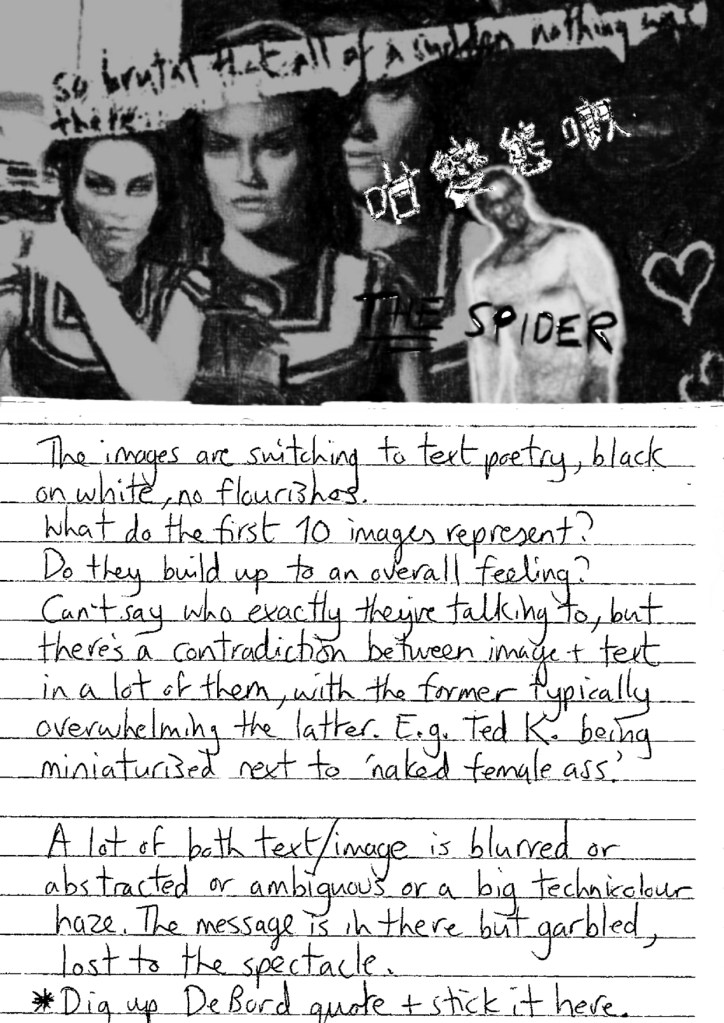 so brutal that all of a sudden nothing was
there
咁變態㗎
THE SPIDER
The images are switching to text poetry, black
on white, no flourishes.
What do the first 10 images represent?
Do they build up to an overall feeling?
Can't say who exactly they're talking to, but
there's a contradiction between image + text
in a lot of them, with the former typically
overwhelming the latter. E.g. Ted K. being
miniaturized next to 'naked female ass.'
A lot of both text/image is blurred or
abstracted or ambiguous or a big technicolour
haze. The message is in there but garbled,
lost to the spectacle.
*Dig up DeBord quote + stick it here.